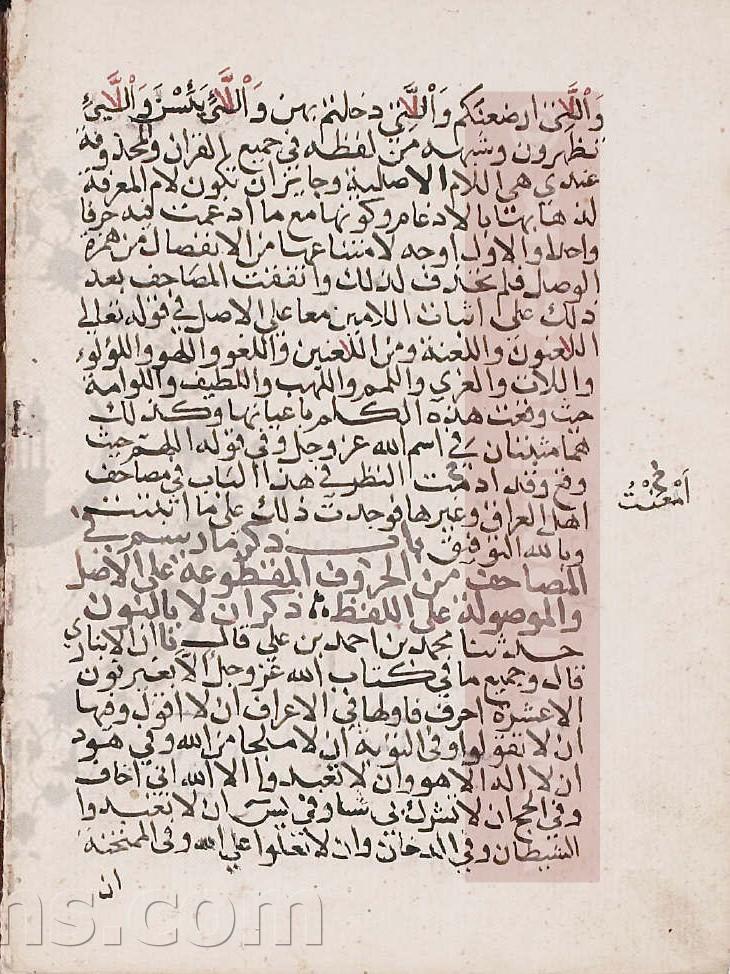 وَالّٰتى ارضعنكم وَالّٰتى دخلتم بهن وَالّٰئ يَئِسْنَ وَالّٰئ
تظهرون وشبهه من لفظه في جميع القران والمحذوفة
عندي هي اللام الاصلية وجايز ان تكون لام المعرفة
لذهابها بالادغام وكونها مع ما ادغمت فيه حرفا
واحدا والاول اوجه لامتناعها من الانفصال من همزة
الوصل فلم تحذف لذلك واتفقت المصاحف بعد
ذلك على اثبات اللامين معا على الاصل في قوله تعالى
اللاعنون واللعنة ومن اللاعبين واللغو واللهو واللولو
واللات والعزى واللمم واللهب واللطيف واللوامة
حيث وقعت هذه الكلم باعيانها وكذلك
هما مثبتتان في اسم الله عز وجل وفي قوله اللهم حيث
وقع وقد امعنت النظر في هذا الباب في مصاحف
اهل العراق وغيرها فوجدت ذلك على ما اثبتت
وبالله التوفيق باب ذكر ما رسم في
المصاحف من الحروف المقطوعة على الاصل
والموصولة على اللفظ ذكر ان لا بالنون
حدثنا محمد بن احمد بن علي قال قا ان الانباري
قال وجميع ما في كتاب الله عز وجل الا بغير نون
الا عشرة احرف فاولها في الاعراف ان لا اقول وفيها
ان لا تقولوا وفي التوبة ان لا ملجا من الله وفي هود
ان لا اله الا هو وان لا تعبدوا الا الله اني اخاف
وفي الحج ان لا تشرك بي شيا وفي يس ان لا تعبدوا
الشيطان وفي الدخان وان لا تعلوا على الله وفي الممتحنة
ان
اَمْعَنْتُ
ns.com